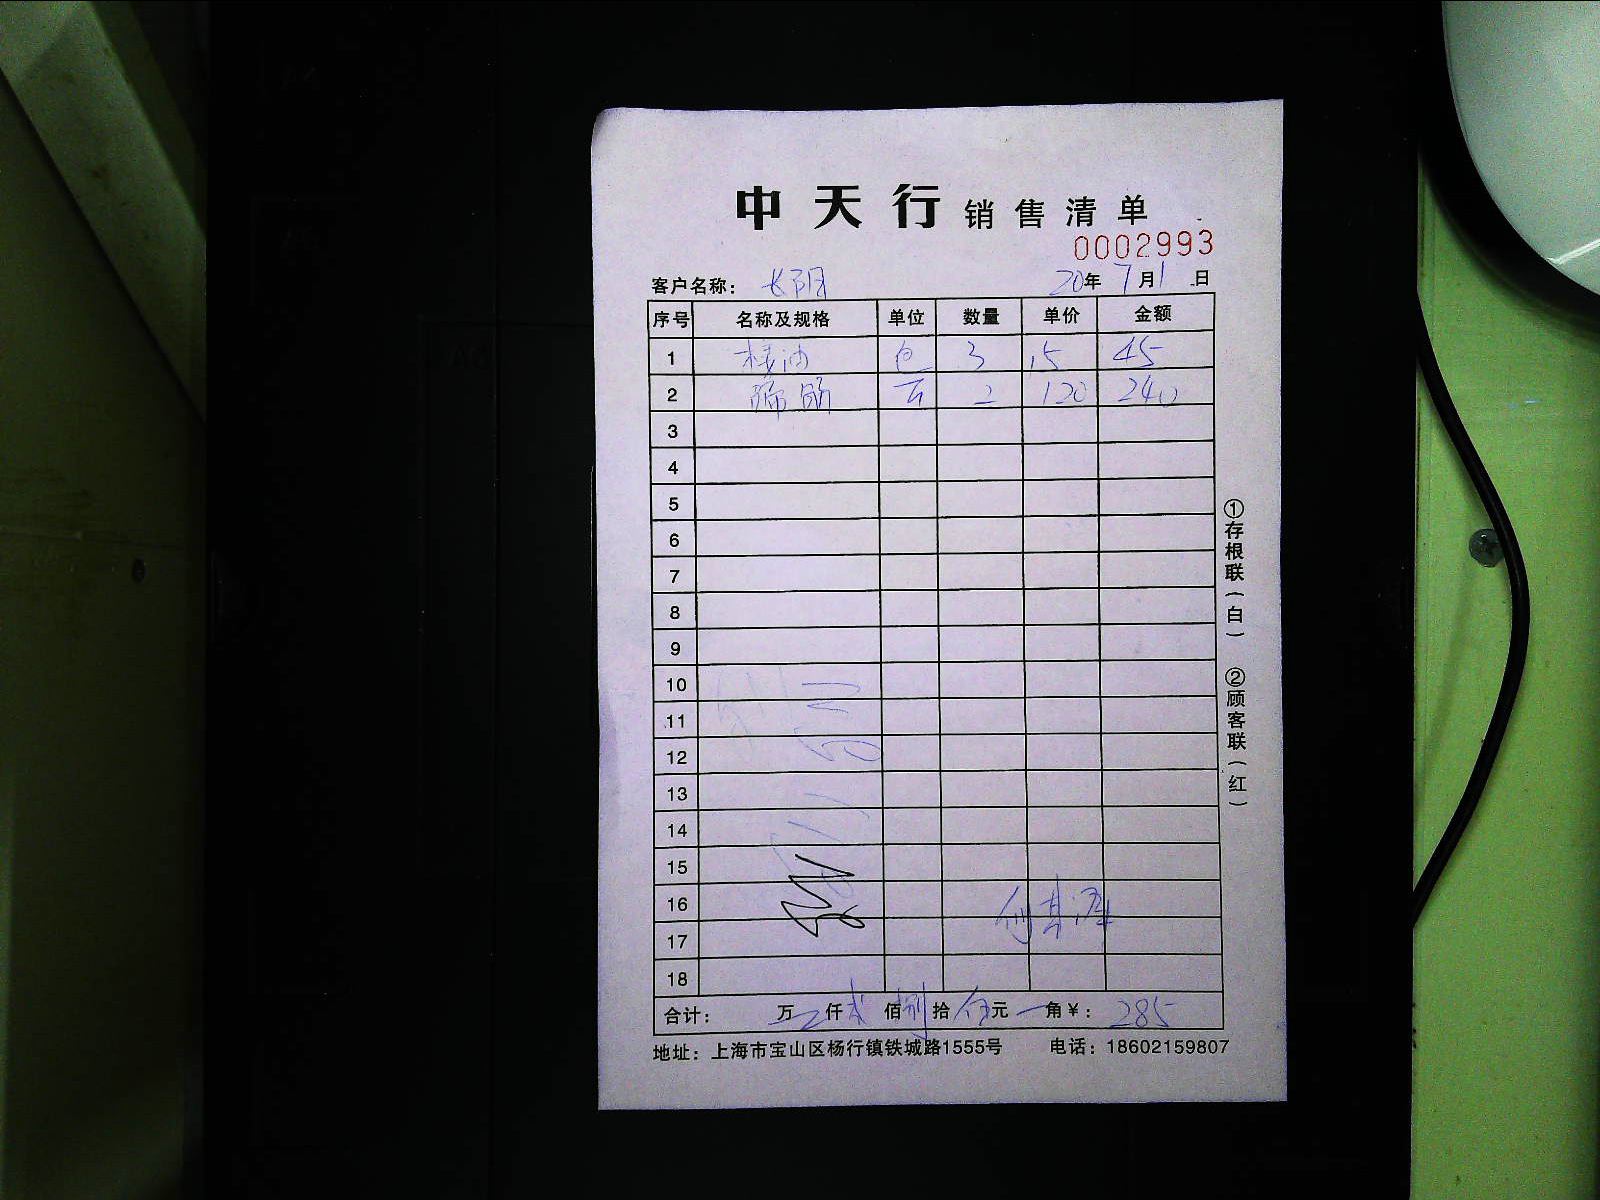 中天行 销售清单
0002993
客户名称： 长阴 20年 7月1日
序号 名称及规格 单位 数量 单价 金额
1 包 3 15 45
2 蹄筋 2 120 240
3
4
5
6
7
8
9
10
11
12
13
14
15
16
17
18
合计： 万 仟 贰 佰 捌 拾 伍 元 角￥： 285
地址：上海市宝山区杨行镇铁城路1555号 电话：18602159807
①存根联（白） ②顾客联（红）